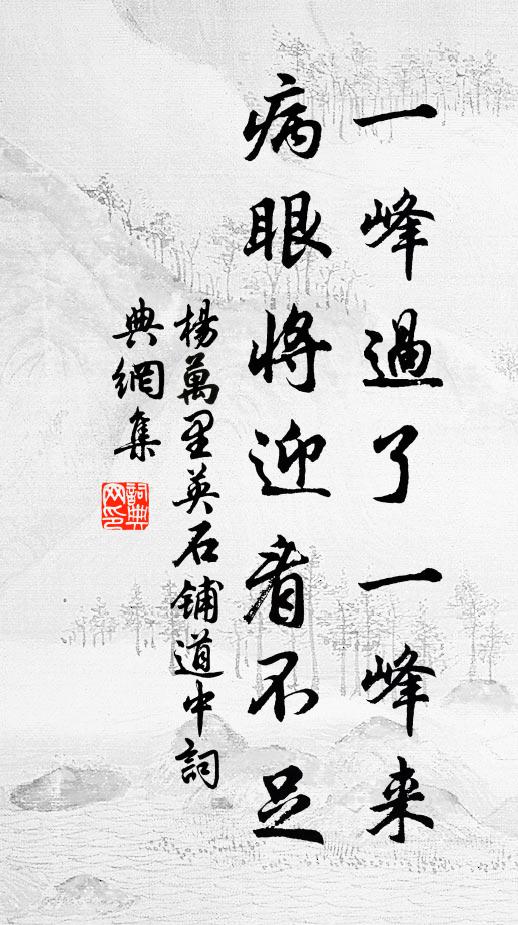 一峰過了一峰来
病眼将迎看不足
楊萬里英石鋪道中詞
典網集
詞典网印